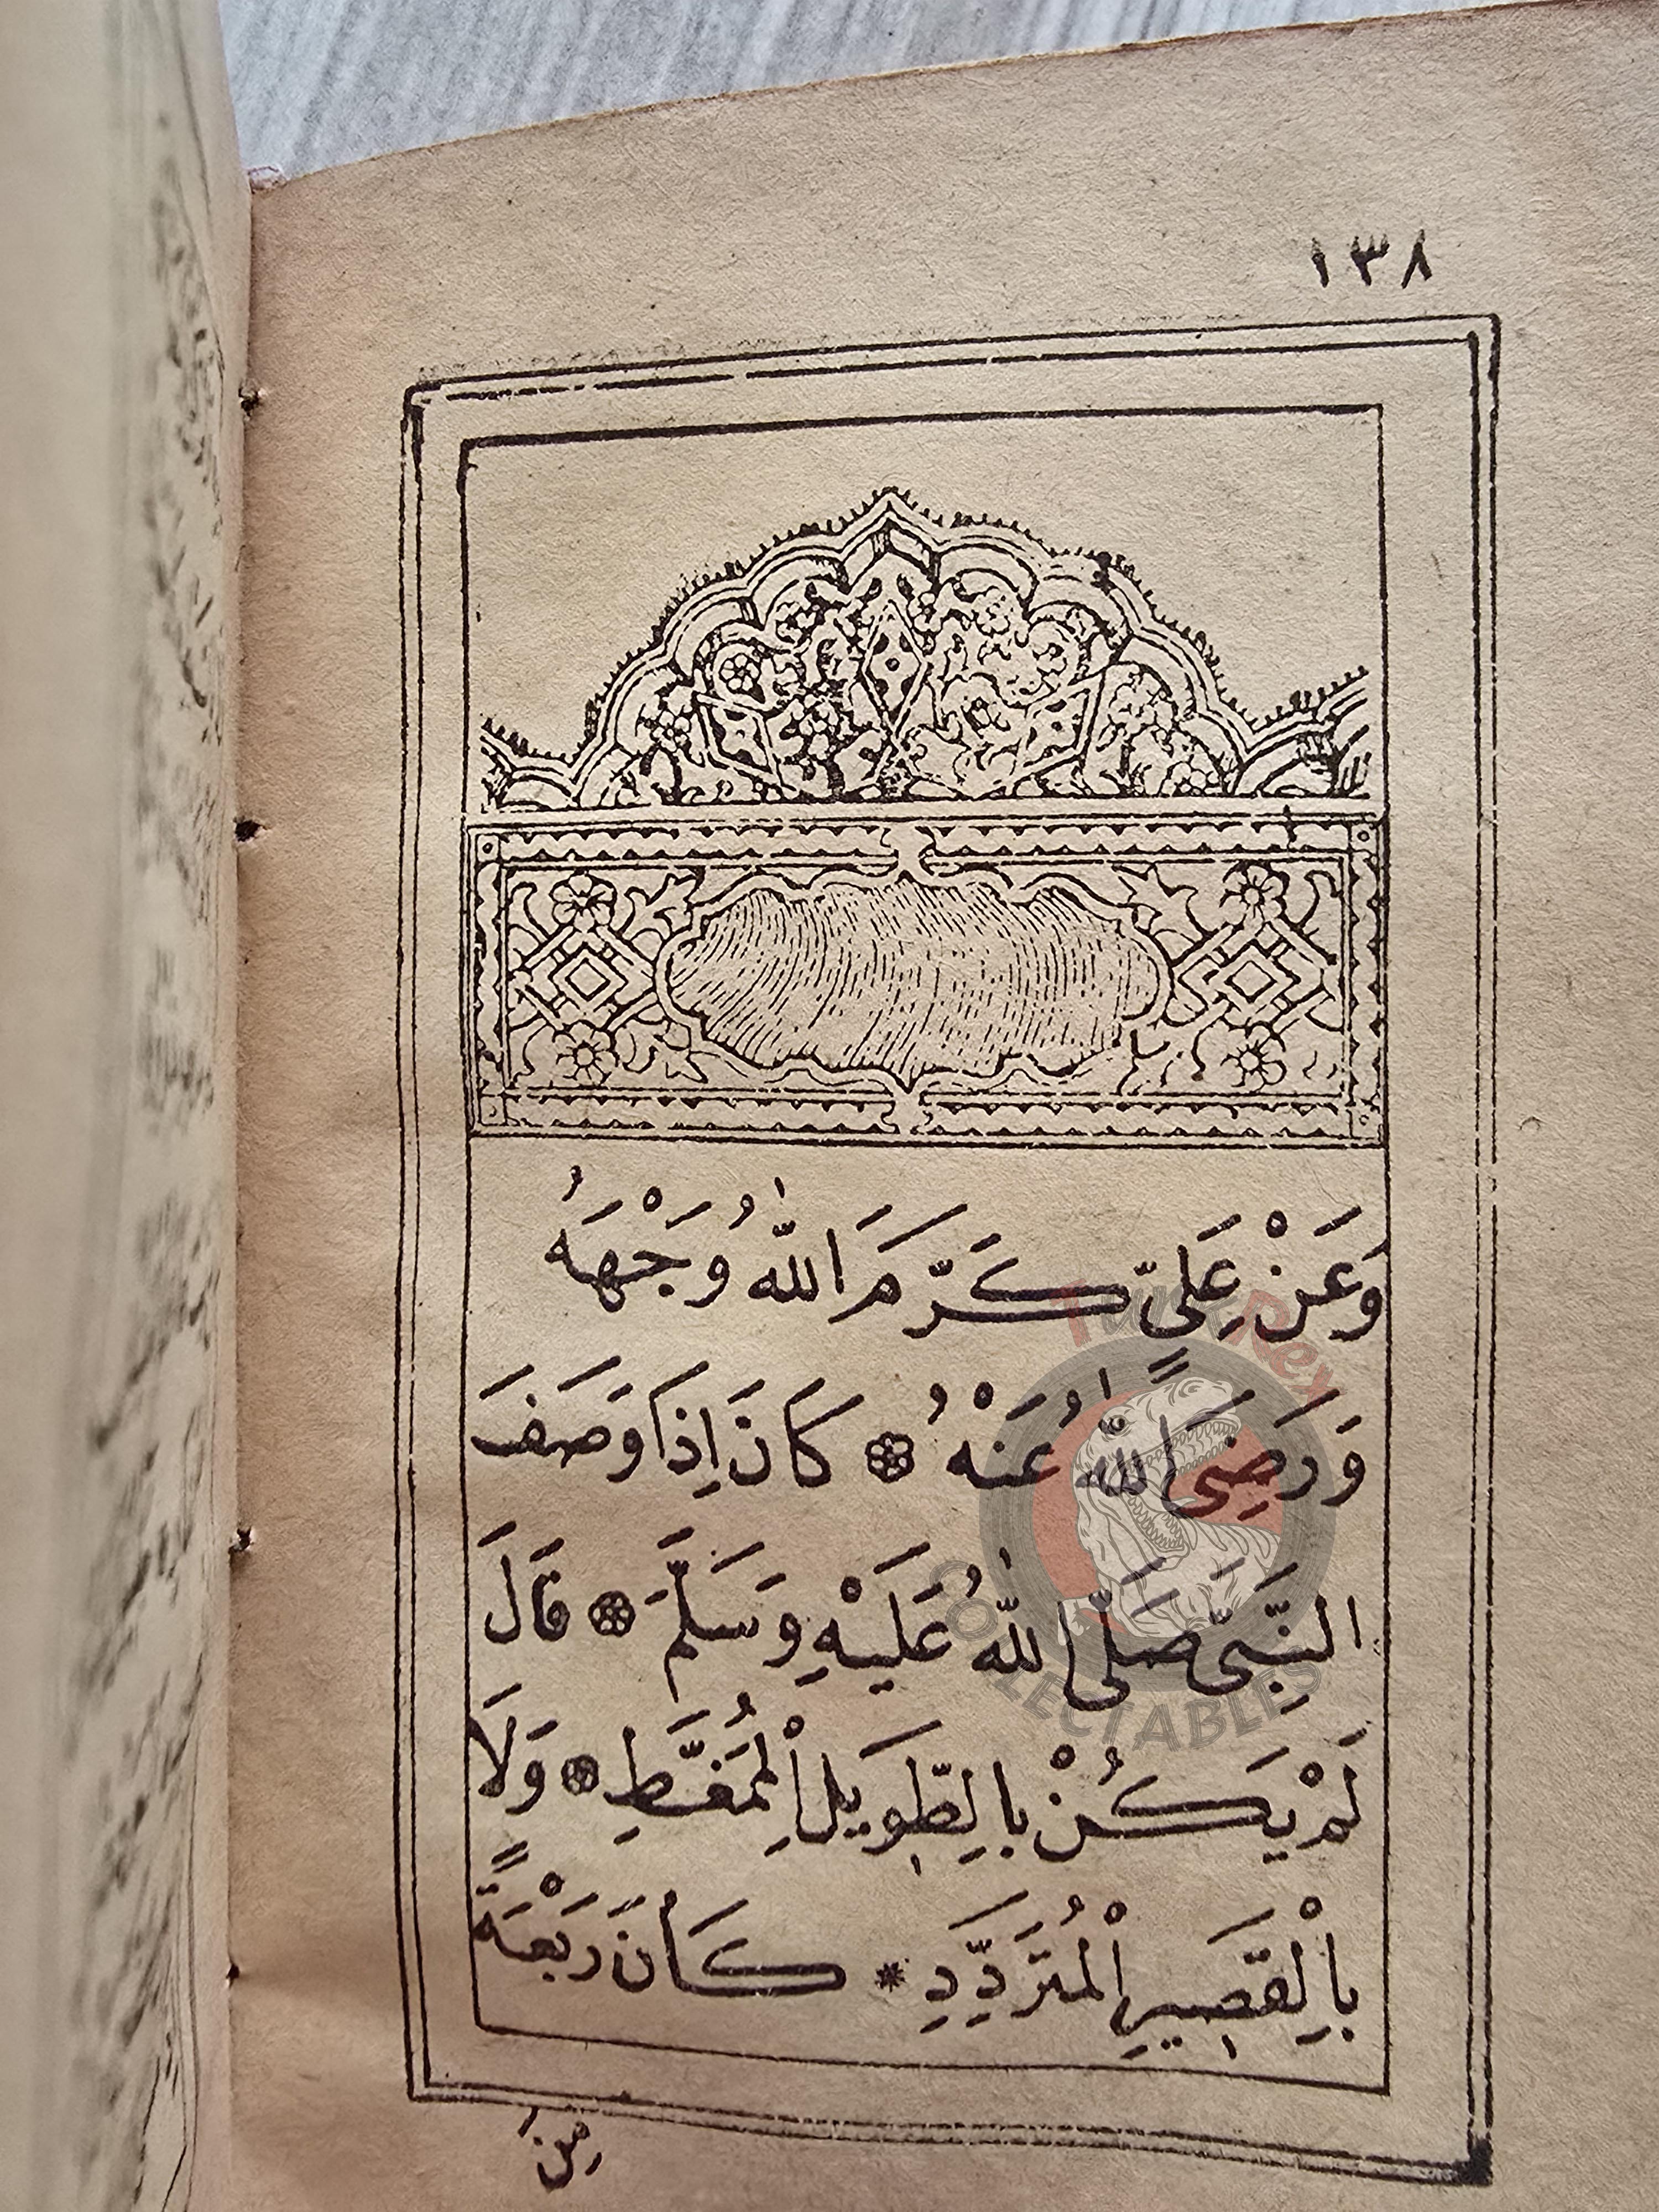 ١٣٨
وَعَنْ عَلِيٍّ كَرَّمَ اللّٰهُ وَجْهَهُ
وَرَضِىَ اللّٰهُ عَنْهُ ۞ كَانَ اِذَا وَصَفَ
النَّبِىَّ صَلَّى اللّٰهُ عَلَيْهِ وَسَلَّمَ ۞ قَالَ
لَمْ يَكُنْ بِالطَّوِيلِ الْمُمَغَّطِ ۞ وَلَا
بِالْقَصِيرِ الْمُتَرَدِّدِ * كَانَ رَبْعَةً
مِنَ
TurkRex
COLLECTABLES